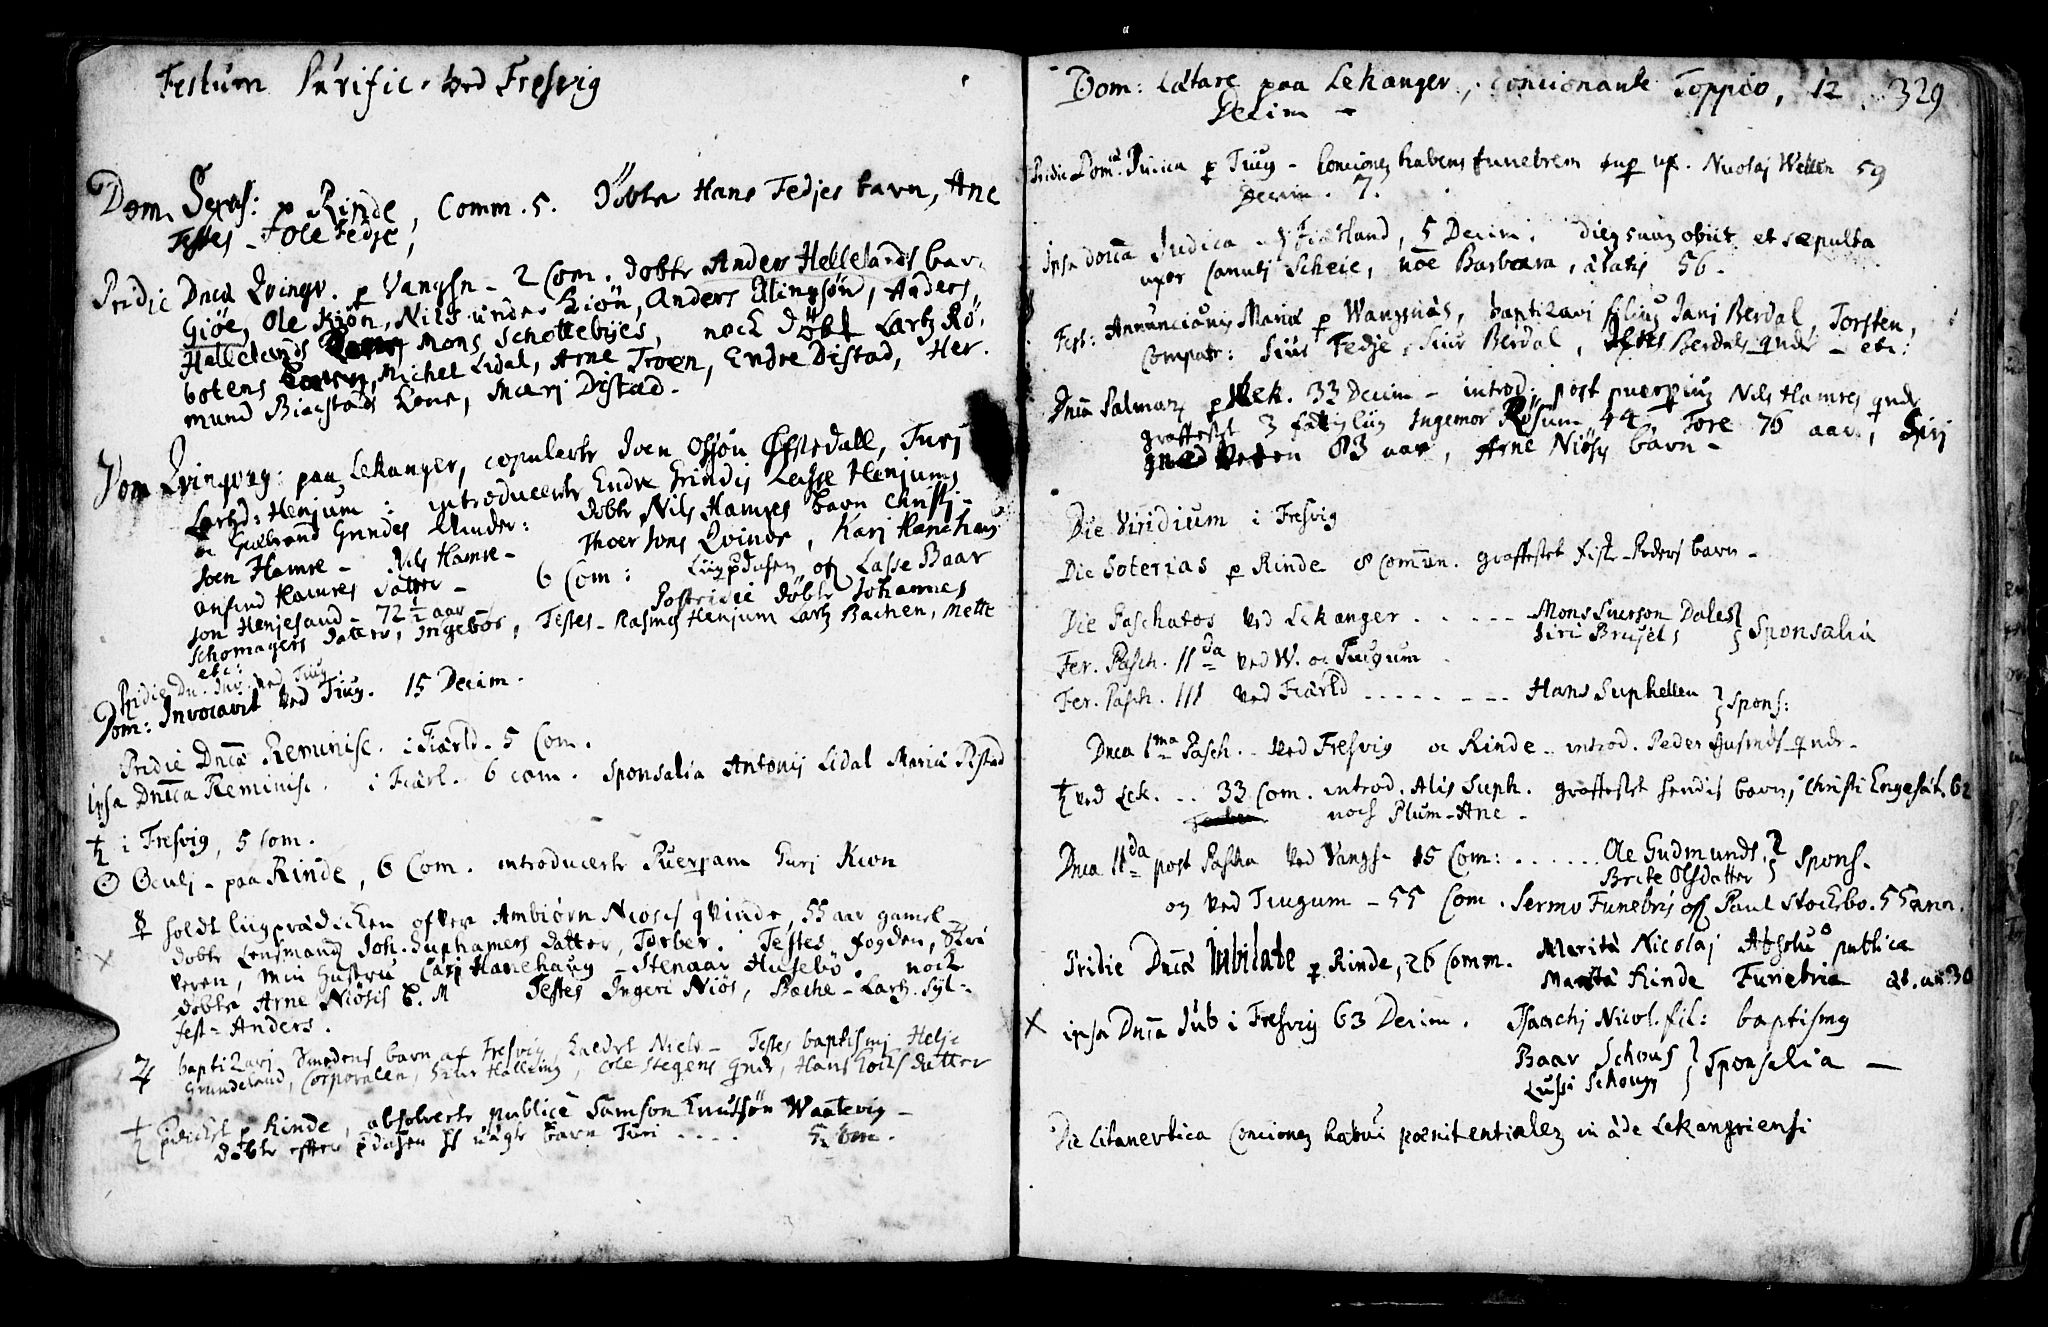 Festum Purific. ved Fresvig
Dom. Sexas: p Rinde, Comm. 5. Døbte Hans Fedjes barn, Ane
Testes - Ole Fedje,
Pridie Dnica Qvinqv. p Vangsn - 2 Com. døbte Anders Hellelands bar
Giøe, Ole Kiøn, Nils under Kiøn, Anders Ellingsøn, Anders
Hallelands Mons Schottebyes, noch døbt Lartz Rø-
botens, Michel Lidal, Arne Troen, Endre Distad, Her-
mund Biaestads Kone, Marj Distad.
Dom Qvinqvag: paa Lekanger, copulerte Joen Ossøn Øfstedall, Turj
Lartzd: Henjum: introducerte Endre Grindis Lasse Henjums
oc Gulbrand Grindes Qvinder: døbte Nils Hamres barn Christj-
Joen Hamre - Nils Hamre - Thoer Jons Qvinde, Karj Hanehaug
Onsind Hamres datter - 6 Com: Liigpdiken off Lasse Baar
son Henjesand - 72 1/2 aar Postridie døbte Johannes
Schomagers datter, Ingebor, Testes - Rasmus Henjum Lartz Bachen, Mette
etc:
Pridie Dn. Inv. ved Tiug.
Dom: Invocavit ved Tiug. 15 Decim.
Pridie Dnica Reminisc. i Fiærld. 5 Com.
ipsa Dnica Reminisc. i Fiærl. 6 com. Sponsalia Antonij Lidal Maria Pistad
♄ i Fresvig, 5 Com.
☉ Oculj - paa Rinde, 8 Com. introducerte Puerpam Gurj Kion
☿ holdt liigprædicken ofver Ambiørn Niøsis qvinde, 55 aar gamel -
× døbte Lensmand Joh. Suphamers datter, Torber. Testes fogden, Skri
veren, Min Hustru Carj Hanehaug - Stenaar Husebø. noch
døbte Arne Niøsis B. M Testes Ingeri Niøs, Bache - Lartz. Syl-
fest - Anders.
♃ baptizavj Smedens barn af Fresvig, kaldet Niels - Testes baptismj Helje
Grundeland, Corporalen, Siur Halleing, Ole Stegens qndr, Hans Kocks datter
♄ pdicket p Rinde, absolverte publice Samson Knutsøn Waatevig -
døbte efter pdiken it uægte barn Turi .... 5 Com.
Dom: Lætare paa Lekanger, concionante Toppio, 12 329
Decim -
Pridie Domcæ Judica p Tiug - concionem habens funebrem sup ux. Nicolaj Wellen 59
Decim. 7.
Ipsa domca Judica - i Fiærland, 5 Decim. obiit et sepulta
uxor Canutj Scheie, noe Barbara, ætatis 56.
Fest: Annuncianis Mariæ p Wangsnæs, baptizavi filius Jani Berdal, Torsten,
Compatr: Siur Fedje, Siur Berdal, Berdals qndr - etc:
Dnica Palmarum p Lek. 33 Decim - introd: post puerpium Nils Hamres qndr
graffestet 3 fattiglig Ingemor Røsum 44, Tore 76 aar, Sirj
83 aar, Arne Niøsis barn -
Die Viridium i Fresvig
Die Soterias p Rinde 8 Commun. graffestet - Peders barn -
Die Paschatos ved Lekanger ..... Mons Siverson Dales } Sponsalia
Siri Brusels
Fer. Pasch. IIda ved W. oc Tiugum
Fer. Pasch. III ved Fiærld ....... Hans Suphellen } Spons:
Dnica 1ma Pasch. - ved Fresvig oc Rinde - introd. Peder qndr -
♄ ved Lek. .. 33 Com. introd. Alis Suph. graffestet barn, Christi Engesæt 62
noch Plum-Ane -
Dnica IIda post Pascha ved Vangs- 15 Com: ...... Ole Gudmunds. } Spons.
Brite Olsdatter
og ved Tiugum - 55 Com. Sermo Funebris off Paul Stocksbo. 55 ann.
Pridie Dnica Iubilate p Rinde, 26 Comm. Marita Nicolaj Absolu° publica
Marita Rinde Funebria æt. an. 30
× ipsa Dnica Jub i Fresvig 63 Decim. Isaachi Nicol. fil: baptismus
Baar Schous } Sponsalia -
Lussi Schougs
Die Litaneutica Concionem habui poenitentialem in æde Lekangriensi